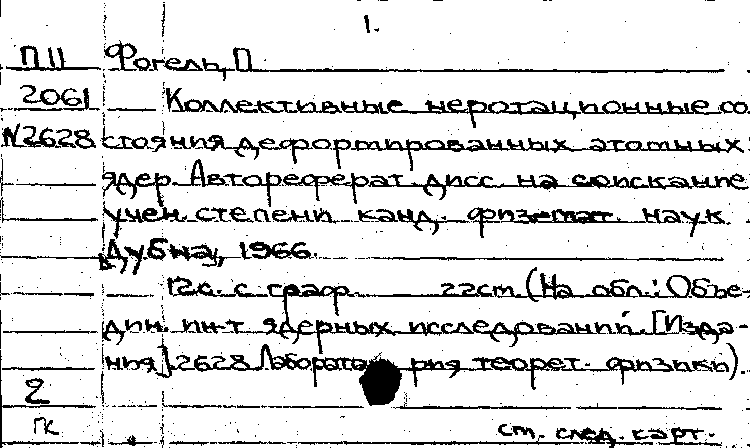 1.
П 11 Фогель, П
2061 Коллективные неротационные со
N2628 стояния деформированных атомных
ядер. Автореферат дисс. на соискание
учен. степени канд. физ-мат. наук.
Дубна, 1966.
12с. с граф. 22см. (На обл.: Объе-
дин. ин-т ядерных исследований. [Изда-
ния] 2628 Лаборатория теорет. физики).
2
ГК см. след. карт.